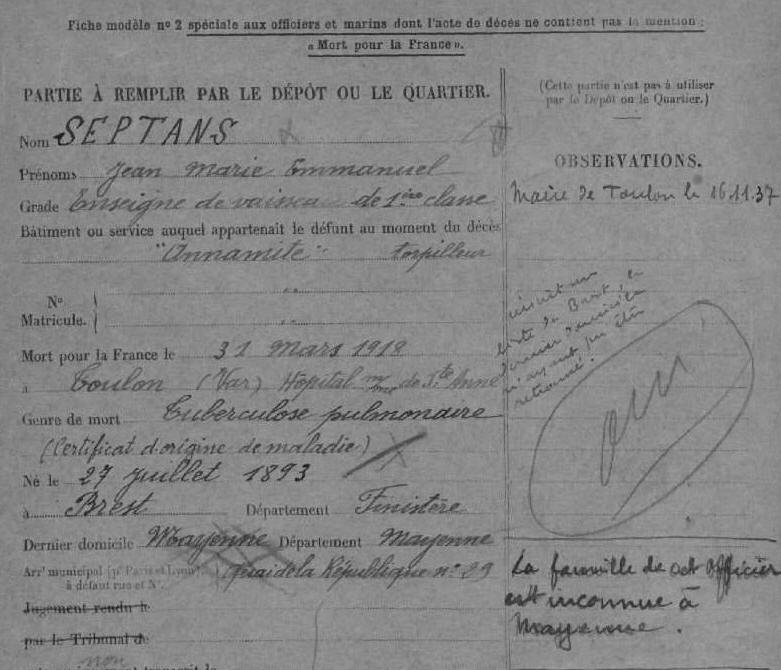 Fiche modèle n° 2 spéciale aux officiers et marins dont l'acte de décès ne contient pas la mention :
« Mort pour la France ».
PARTIE À REMPLIR PAR LE DÉPÔT OU LE QUARTIER.
Nom SEPTANS
Prénoms Jean Marie Emmanuel
Grade Enseigne de vaisseau de 1ère classe
Bâtiment ou service auquel appartenait le défunt au moment du décès
"Annamite" torpilleur
N°
Matricule.
Mort pour la France le 31 Mars 1918
à Toulon (Var) Hôpital mme de Ste Anne
Genre de mort Tuberculose pulmonaire
(Certificat d'origine de maladie)
Né le 27 Juillet 1893
à Brest Département Finistère
Dernier domicile Mayenne Département Mayenne
Arrt municipal (pr Paris et Lyon)
à défaut rue et N°. quai de la République n° 29
Jugement rendu le
par le Tribunal de
non
(Cette partie n'est pas à utiliser
par le Dépôt ou le Quartier.)
OBSERVATIONS.
Maire de Toulon le 16.11.37
inscrit sur
liste de Brest, le
dernier domicile
n'ayant pu être
retrouvé.
La famille de cet officier
est inconnue à
Mayenne.